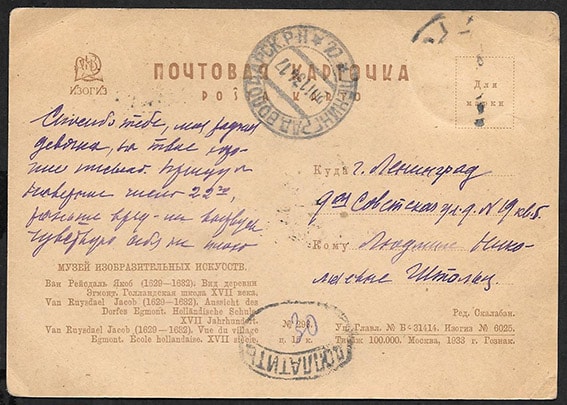 ИЗОГИЗ
ПОЧТОВАЯ КАРТОЧКА
POŜTA KARTO
Для
марки
Спасибо тебе, моя родная
девочка, за твое
письмо. Приеду я
наверное число 22го,
раньше вряд-ли вырвусь.
Чувствую себя не плохо
Куда г. Ленинград
Советская ул. д. N 19 кв. 6
Кому Людмиле Нико-
лаевне Штольц
МУЗЕЙ ИЗОБРАЗИТЕЛЬНЫХ ИСКУССТВ.
Ван Рейсдаль Якоб (1629—1682). Вид деревни
Эгмонд. Голландская школа XVII века.
Van Ruysdael Jacob (1629—1682). Aussicht des
Dorfes Egmont. Holländische Schule
XVII Jahrhundert.
Van Ruysdael Jacob (1629—1682). Vue du village
Egmont. Ecole hollandaise. XVII siècle.
ц. 15 к.
ДОПЛАТИТЬ
30
Ред. Скалабан.
Уп. Главл. № Б-31414. Изогиз № 6025.
Тираж 100.000. Москва, 1933 г. Гознак.